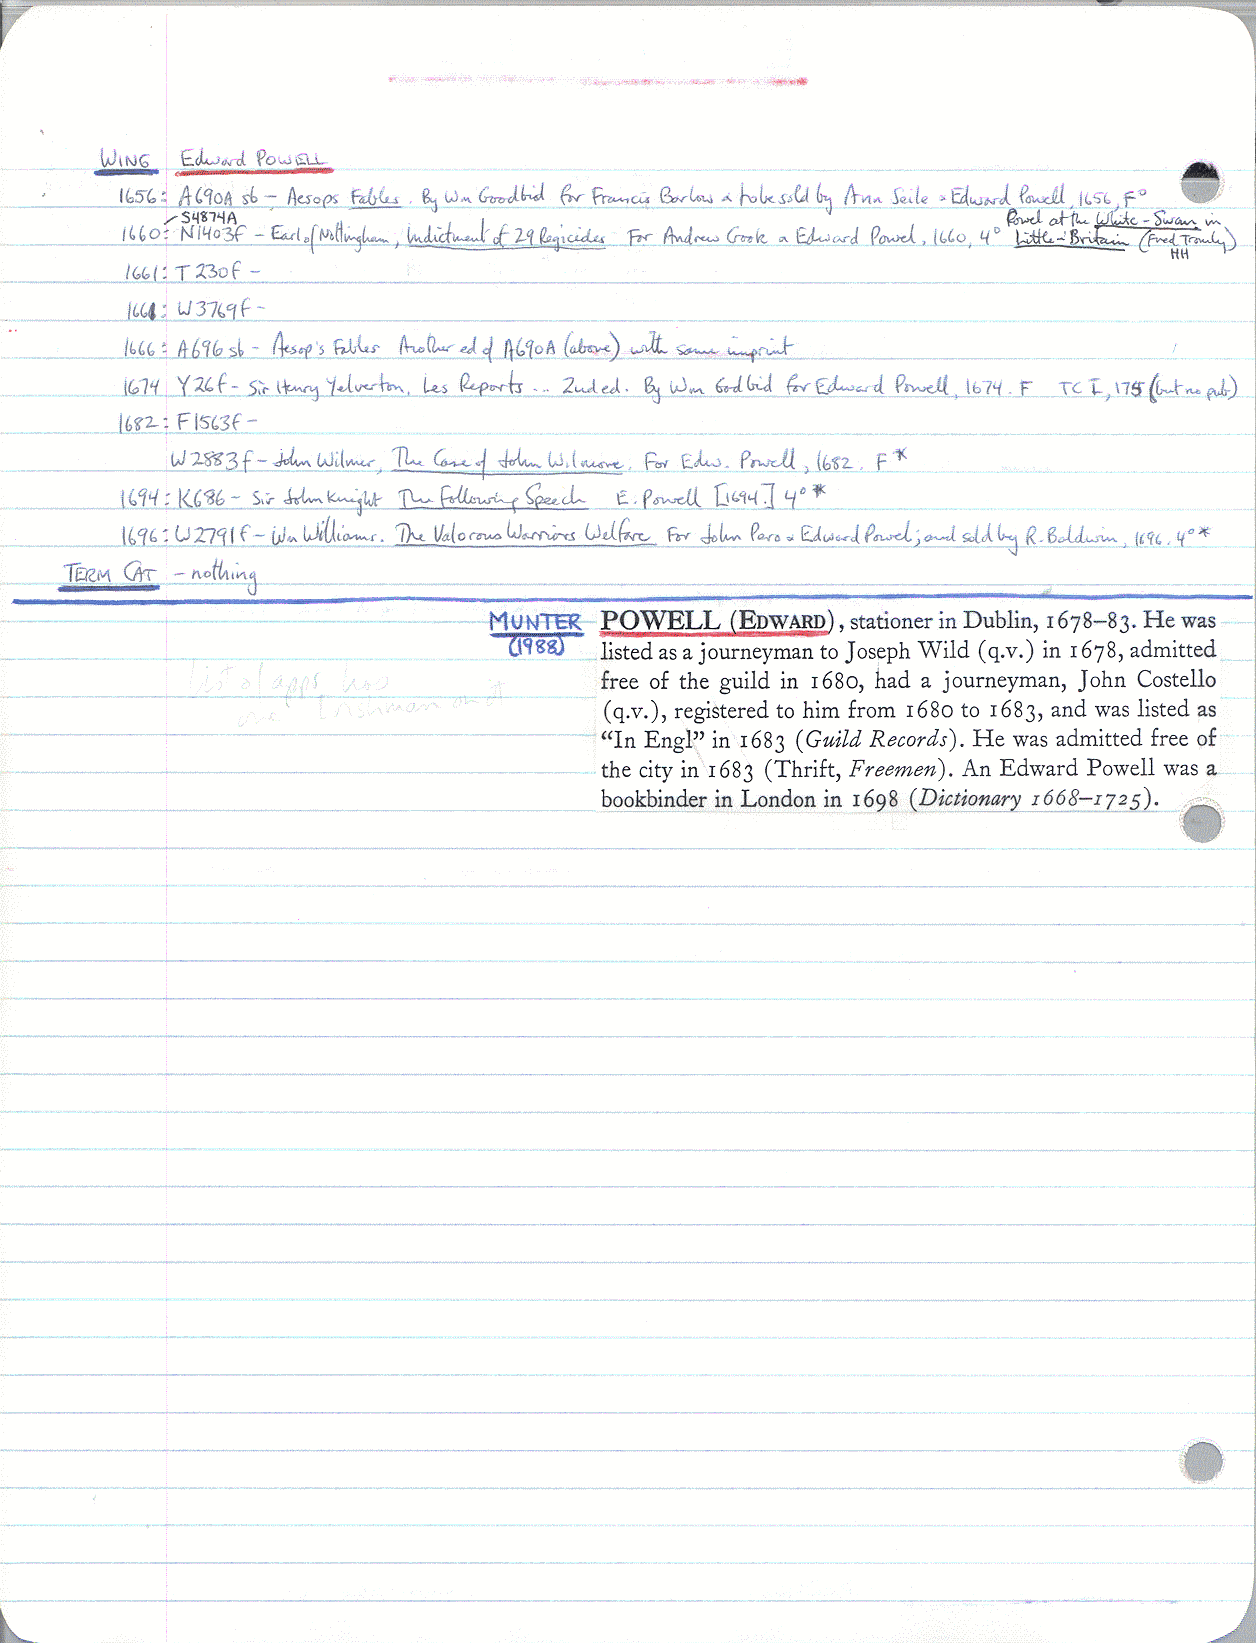 WING Edward POWELL
1656: A690A sb - Aesops Fables. By Wm Goodbid for Francis Barlow & to be sold by Ann Seile & Edward Powell, 1656, F°
S4874A
Powel at the White-Swan in
1660: N1403f - Earl of Nottingham, Indictment of 29 Regicides For Andrew Crook & Edward Powel, 1660, 4° Little-Britain (Fred Tromly)
HH
1661: T230f -
1661: W3769f -
1666: A696 sb - Aesop's Fables Another ed of A690A (above) with same imprint
1674 Y26f - Sir Henry Yelverton, Les Reports... 2nd ed. By Wm Godbid for Edward Powell, 1674. F TC I, 175 (but no pub)
1682: F1563f -
W2883f - John Wilmer, The Case of John Wilmore. For Edw. Powell, 1682. F*
1694: K686 - Sir John Knight The Following Speech E. Powell [1694.] 4°*
1696: W2791f - Wm Williams. The Valorous Warriors Welfare For John Pero & Edward Powel; and sold by R. Baldwin, 1696. 4°*
TERM CAT - nothing
MUNTER
(1988)
POWELL (EDWARD), stationer in Dublin, 1678–83. He was
listed as a journeyman to Joseph Wild (q.v.) in 1678, admitted
free of the guild in 1680, had a journeyman, John Costello
(q.v.), registered to him from 1680 to 1683, and was listed as
“In Engl” in 1683 (Guild Records). He was admitted free of
the city in 1683 (Thrift, Freemen). An Edward Powell was a
bookbinder in London in 1698 (Dictionary 1668–1725).
List of apps has
one Irishman on it